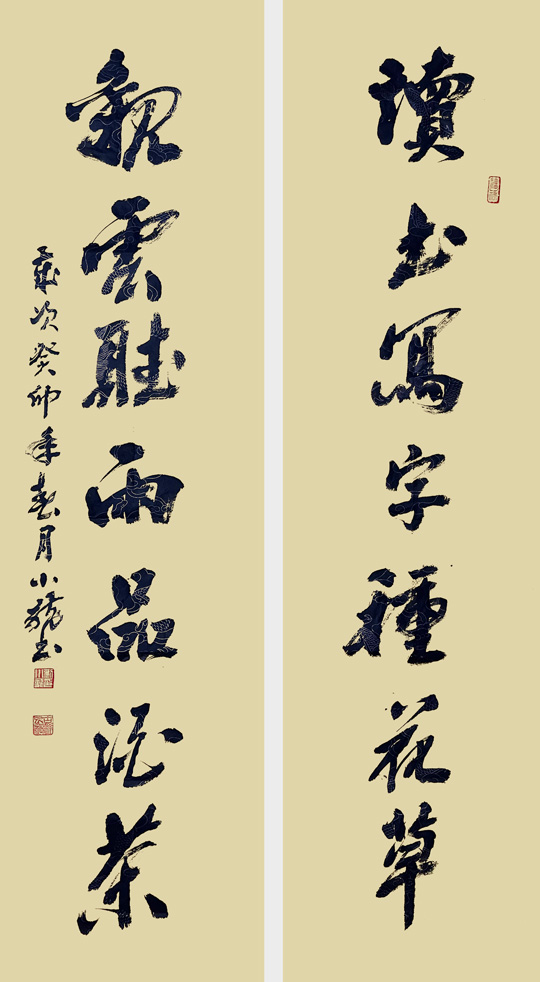 讀书寫字種花草
觀雲聴雨品酒茶
歲次癸卯年春月小龍书